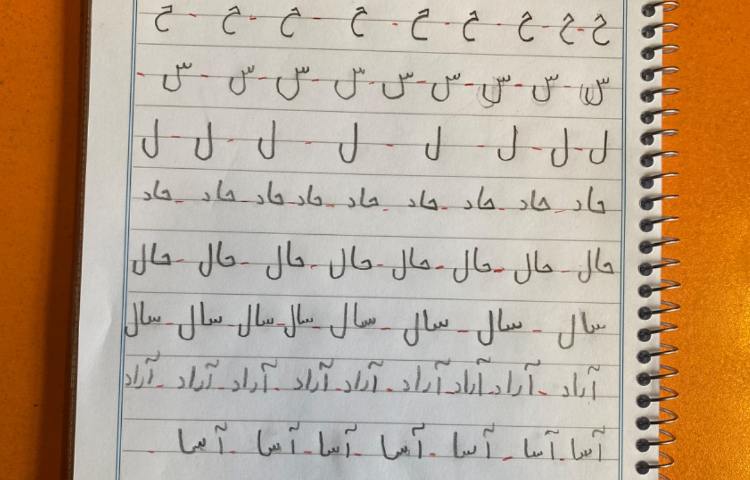 ح - ح - ح - ح - ح - ح - ح - ح - ح
س - س - س - س - س - س - س - س - س -
ل - ل - ل - ل - ل - ل - ل - ل
حاد - حاد - حاد - حاد - حاد - حاد - حاد - حاد - حاد
حال - حال - حال - حال - حال - حال - حال - حال
سال - سال - سال - سال - سال - سال - سال - سال
آراد - آراد - آراد - آراد - آراد - آراد - آراد - آراد - آراد
آسا - آسا - آسا - آسا - آسا - آسا - آسا -